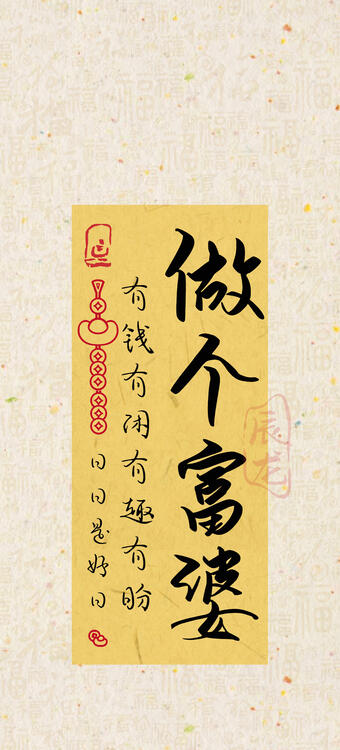 做个富婆
有钱有闲有趣有盼
日日是好日
辰龙